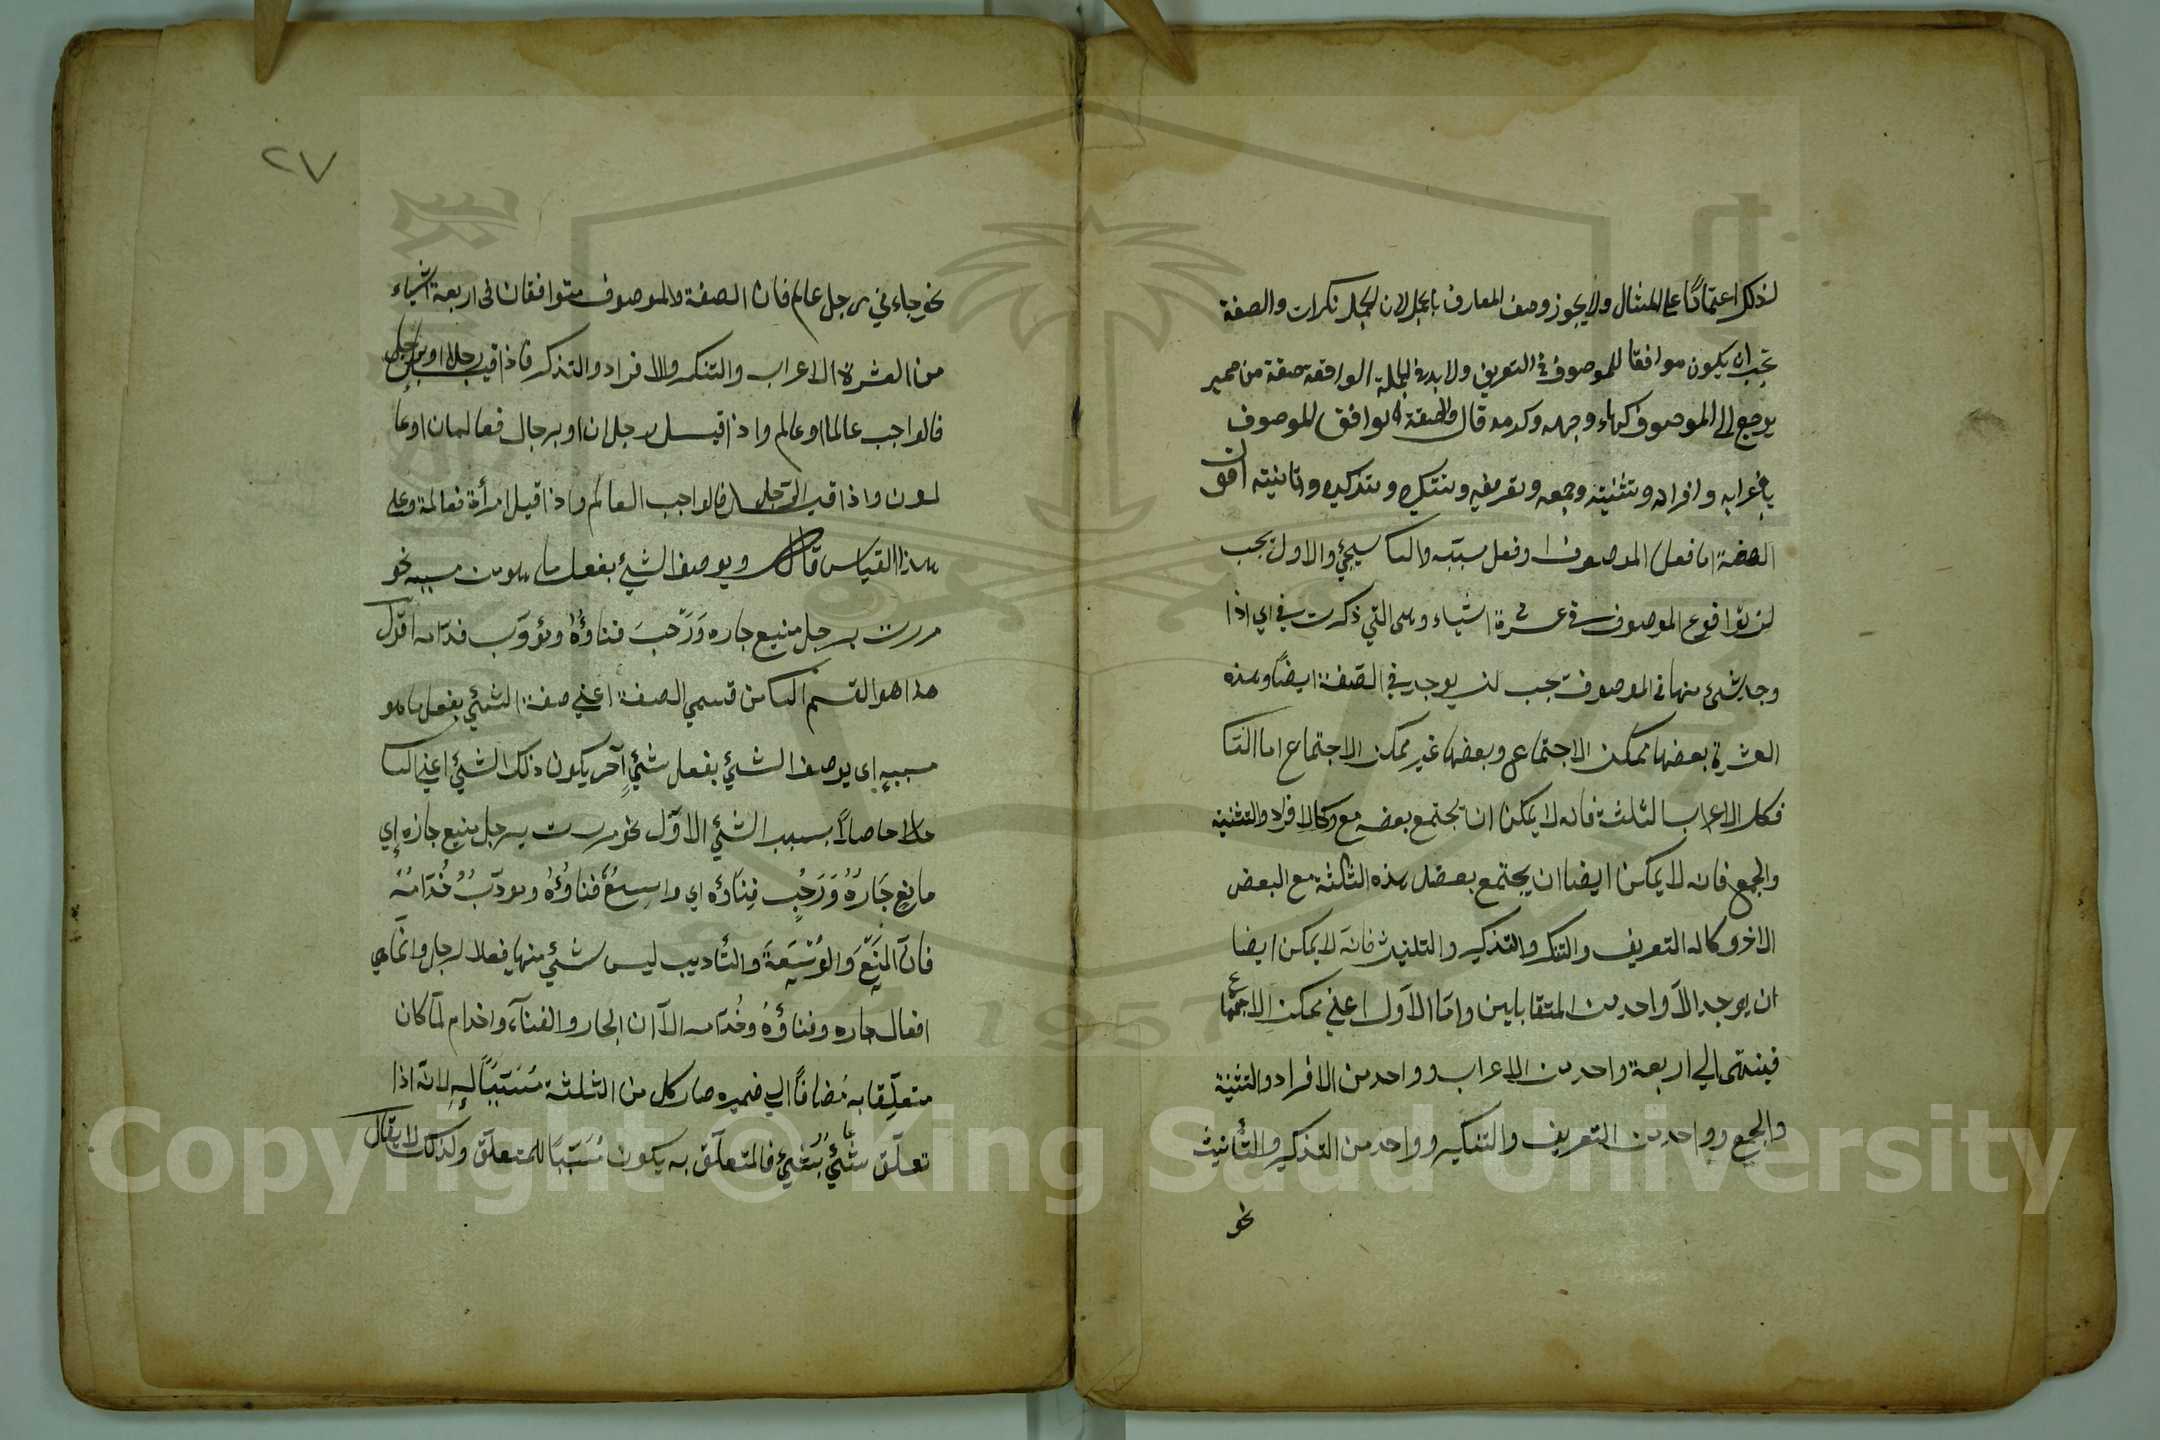 لذلك اعتمادًا على المثال ولا يجوز وصف المعارف بالجمل لان الجمل نكرات والصفة
يجب ان يكون موافقا للموصوف في التعريف ولا بد في الجملة الواقعة صفة من ضمير
يرجع الى الموصوف كهاء وجهه وكدمه قال والصفة توافق للموصوف
باعرابه وافراده وتثنيته وجمعه وتعريفه وتنكيره وتذكيره وتانيثه اقول
الصفة اما فعل الموصوف او فعل سببه والثا سيجئ والاول يجب
ان توافق الموصوف في عشرة اشياء وهى التي ذكرت في اي اذا
وجد شئ منها في الموصوف يجب ان يوجد في الصفة ايضًا وهذه
العشرة بعضها ممكن الاجتماع وبعضها غير ممكن الاجتماع اما الثا
فكالاعراب الثلثة فانه لا يمكن ان يجتمع بعضه مع وكالافراد والتثنية
والجمع فانه لا يمكن ايضا ان يجتمع بعض هذه الثلثة مع البعض
الاخر وكالتعريف والتنكر والتذكير والتانيث فانه لا يمكن ايضا
ان يوجد الا واحد من المتقابلين واما الاول اعني ممكن الاجتماع
فينتهى الى اربعة واحد من الاعراب وواحد من الافراد والتثنية
والجمع وواحد من التعريف والتنكير وواحد من التذكير والتأنيث
نحو
٢٧
نحو جاءني رجل عالم فان الصفة والموصوف متوافقان في اربعة اشياء
من العشرة الاعراب والتنكر والافراد والتذكر فاذا قيل رجلا او برجل
فالواجب عالما او عالم واذا قيل رجلان او برجال فعالمان او عا
لمون واذا قيل الرجل فالواجب العالم واذا قيل امرأة فعالمة وعلى
هذا القياس قال ويوصف الشئ بفعل ما هو من سببه نحو
مررت برجل منيع جاره وَرَحْبَ فناؤُهُ ومؤدّب خدّامه اقول
هذا هو القسم الثا من قسمي الصفة اعني صفة الشئ بفعل ما هو
سببه اى يوصف الشئ بفعل شئٍ آخر يكون ذلك الشئ اعني الثا
حاصلًا بسبب الشئ الاوّل نحو مررت برجل منيع جاره اي
مانعٍ جَارُهُ وَرَحْبٍ فِناؤُه اي واسِعٌ فناؤُهُ ومودّبٌ خُدّامُهُ
فانّ المَنْعَ والوُسْعَةَ والتأديب ليس شئ منها فعلا لرجل وانما هي
افعال جاره وفناؤُهُ وخُدّامه الّا ان الجار والفناء واخدام لمّا كان
متعلّقا به مُضافًا الى ضميره صار كل من الثلثة مُسَبَّبًا له لانه اذا
تعلّق شئٌ بشئٍ فالمتعلّق به يكون مُسَبَّبًا للمتعلّق ولذلك لا يقال
1957
Copyright © King Saud University